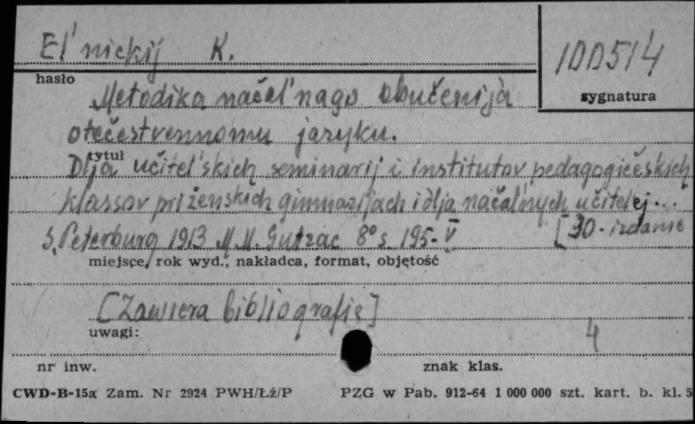 El'nickij K.
100514
hasło
sygnatura
Metodika načel'nago obučenija
otečestvennomu jazyku.
tytuł
Dlja učitel'skich seminarij i institutov pedagogičeskich
klassov pri ženskich gimnazijach i dlja načal'nych učitelej...
S. Peterburg 1913 M.M. Gutzac 8° s. 195-V [30-izdanie
miejsce, rok wyd., nakładca, format, objętość
[Zawiera bibliografię]
uwagi:
4
nr inw.
znak klas.
CWD-B-15a Zam. Nr 2924 PWH/Łź/P PZG w Pab. 912-64 1 000 000 szt. kart. b. kl. 5